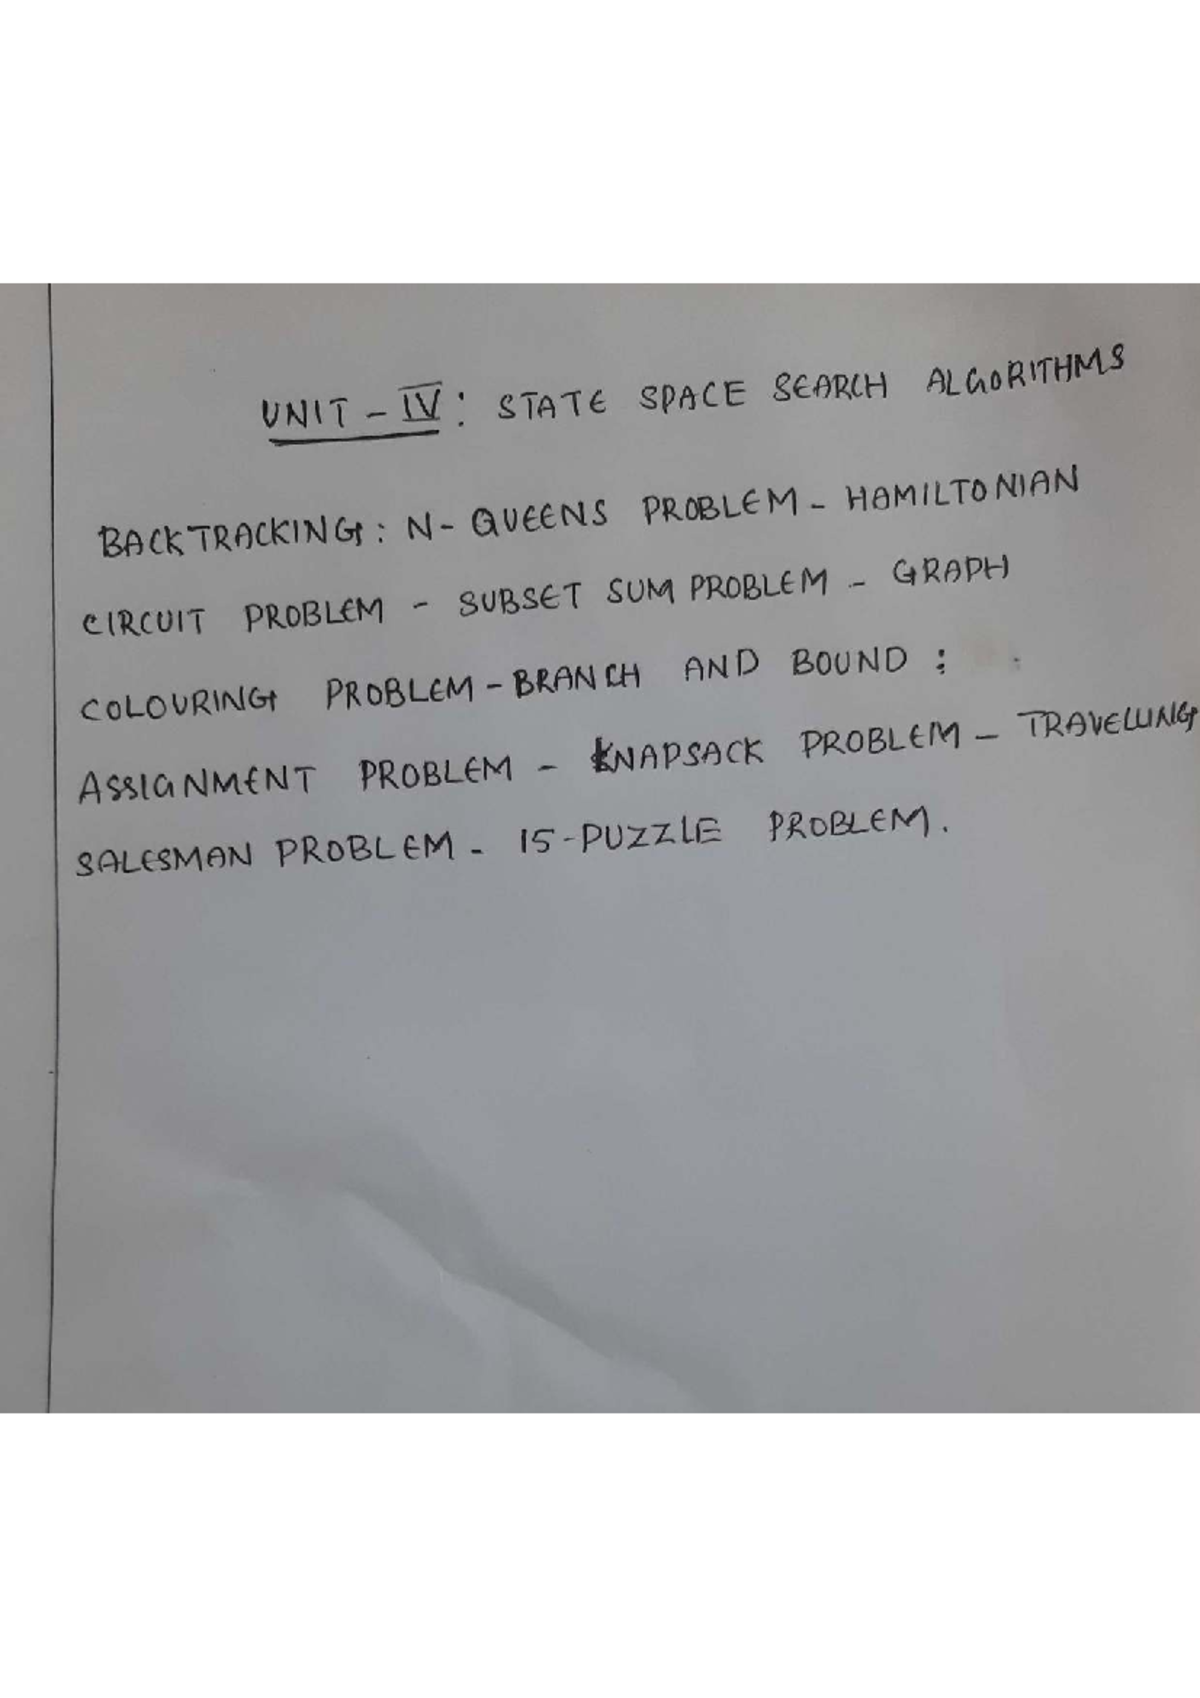 UNIT - IV : STATE SPACE SEARCH ALGORITHMS
BACKTRACKING : N - QUEENS PROBLEM - HAMILTONIAN
CIRCUIT PROBLEM - SUBSET SUM PROBLEM - GRAPH
COLOURING PROBLEM - BRANCH AND BOUND :
ASSIGNMENT PROBLEM - KNAPSACK PROBLEM - TRAVELLING
SALESMAN PROBLEM - 15-PUZZLE PROBLEM.